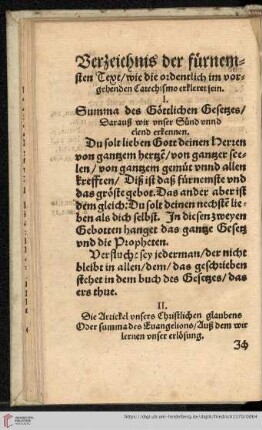 Verzeichnis der fürnem-
sten Text/ wie die ordentlich im vor-
gehenden Catechismo erkleret sein.
I.
Summa des Göttlichen Gesetzes/
Darauß wir vnser Sünd vnnd
elend erkennen.
Du solt lieben Gott deinen Herren
von gantzem hertzē/ von gantzer see-
len/ von gantzem gemüt vnnd allen
krefften/ Diß ist daß fürnemste vnd
das gröste gebot. Das ander aber ist
dem gleich: Du solt deinen nechstē lie-
ben als dich selbst. In diesen zweyen
Gebotten hanget das gantze Gesetz
vnd die Propheten.
Verflucht sey jederman/ der nicht
bleibt in allen/ dem/ das geschrieben
stehet in dem buch des Gesetzes/ das
ers thue.
II.
Die Artickel vnsers Christlichen glaubens
Oder summa des Euangelions/ Auß dem wir
lernen vnser erlösung.
Ich